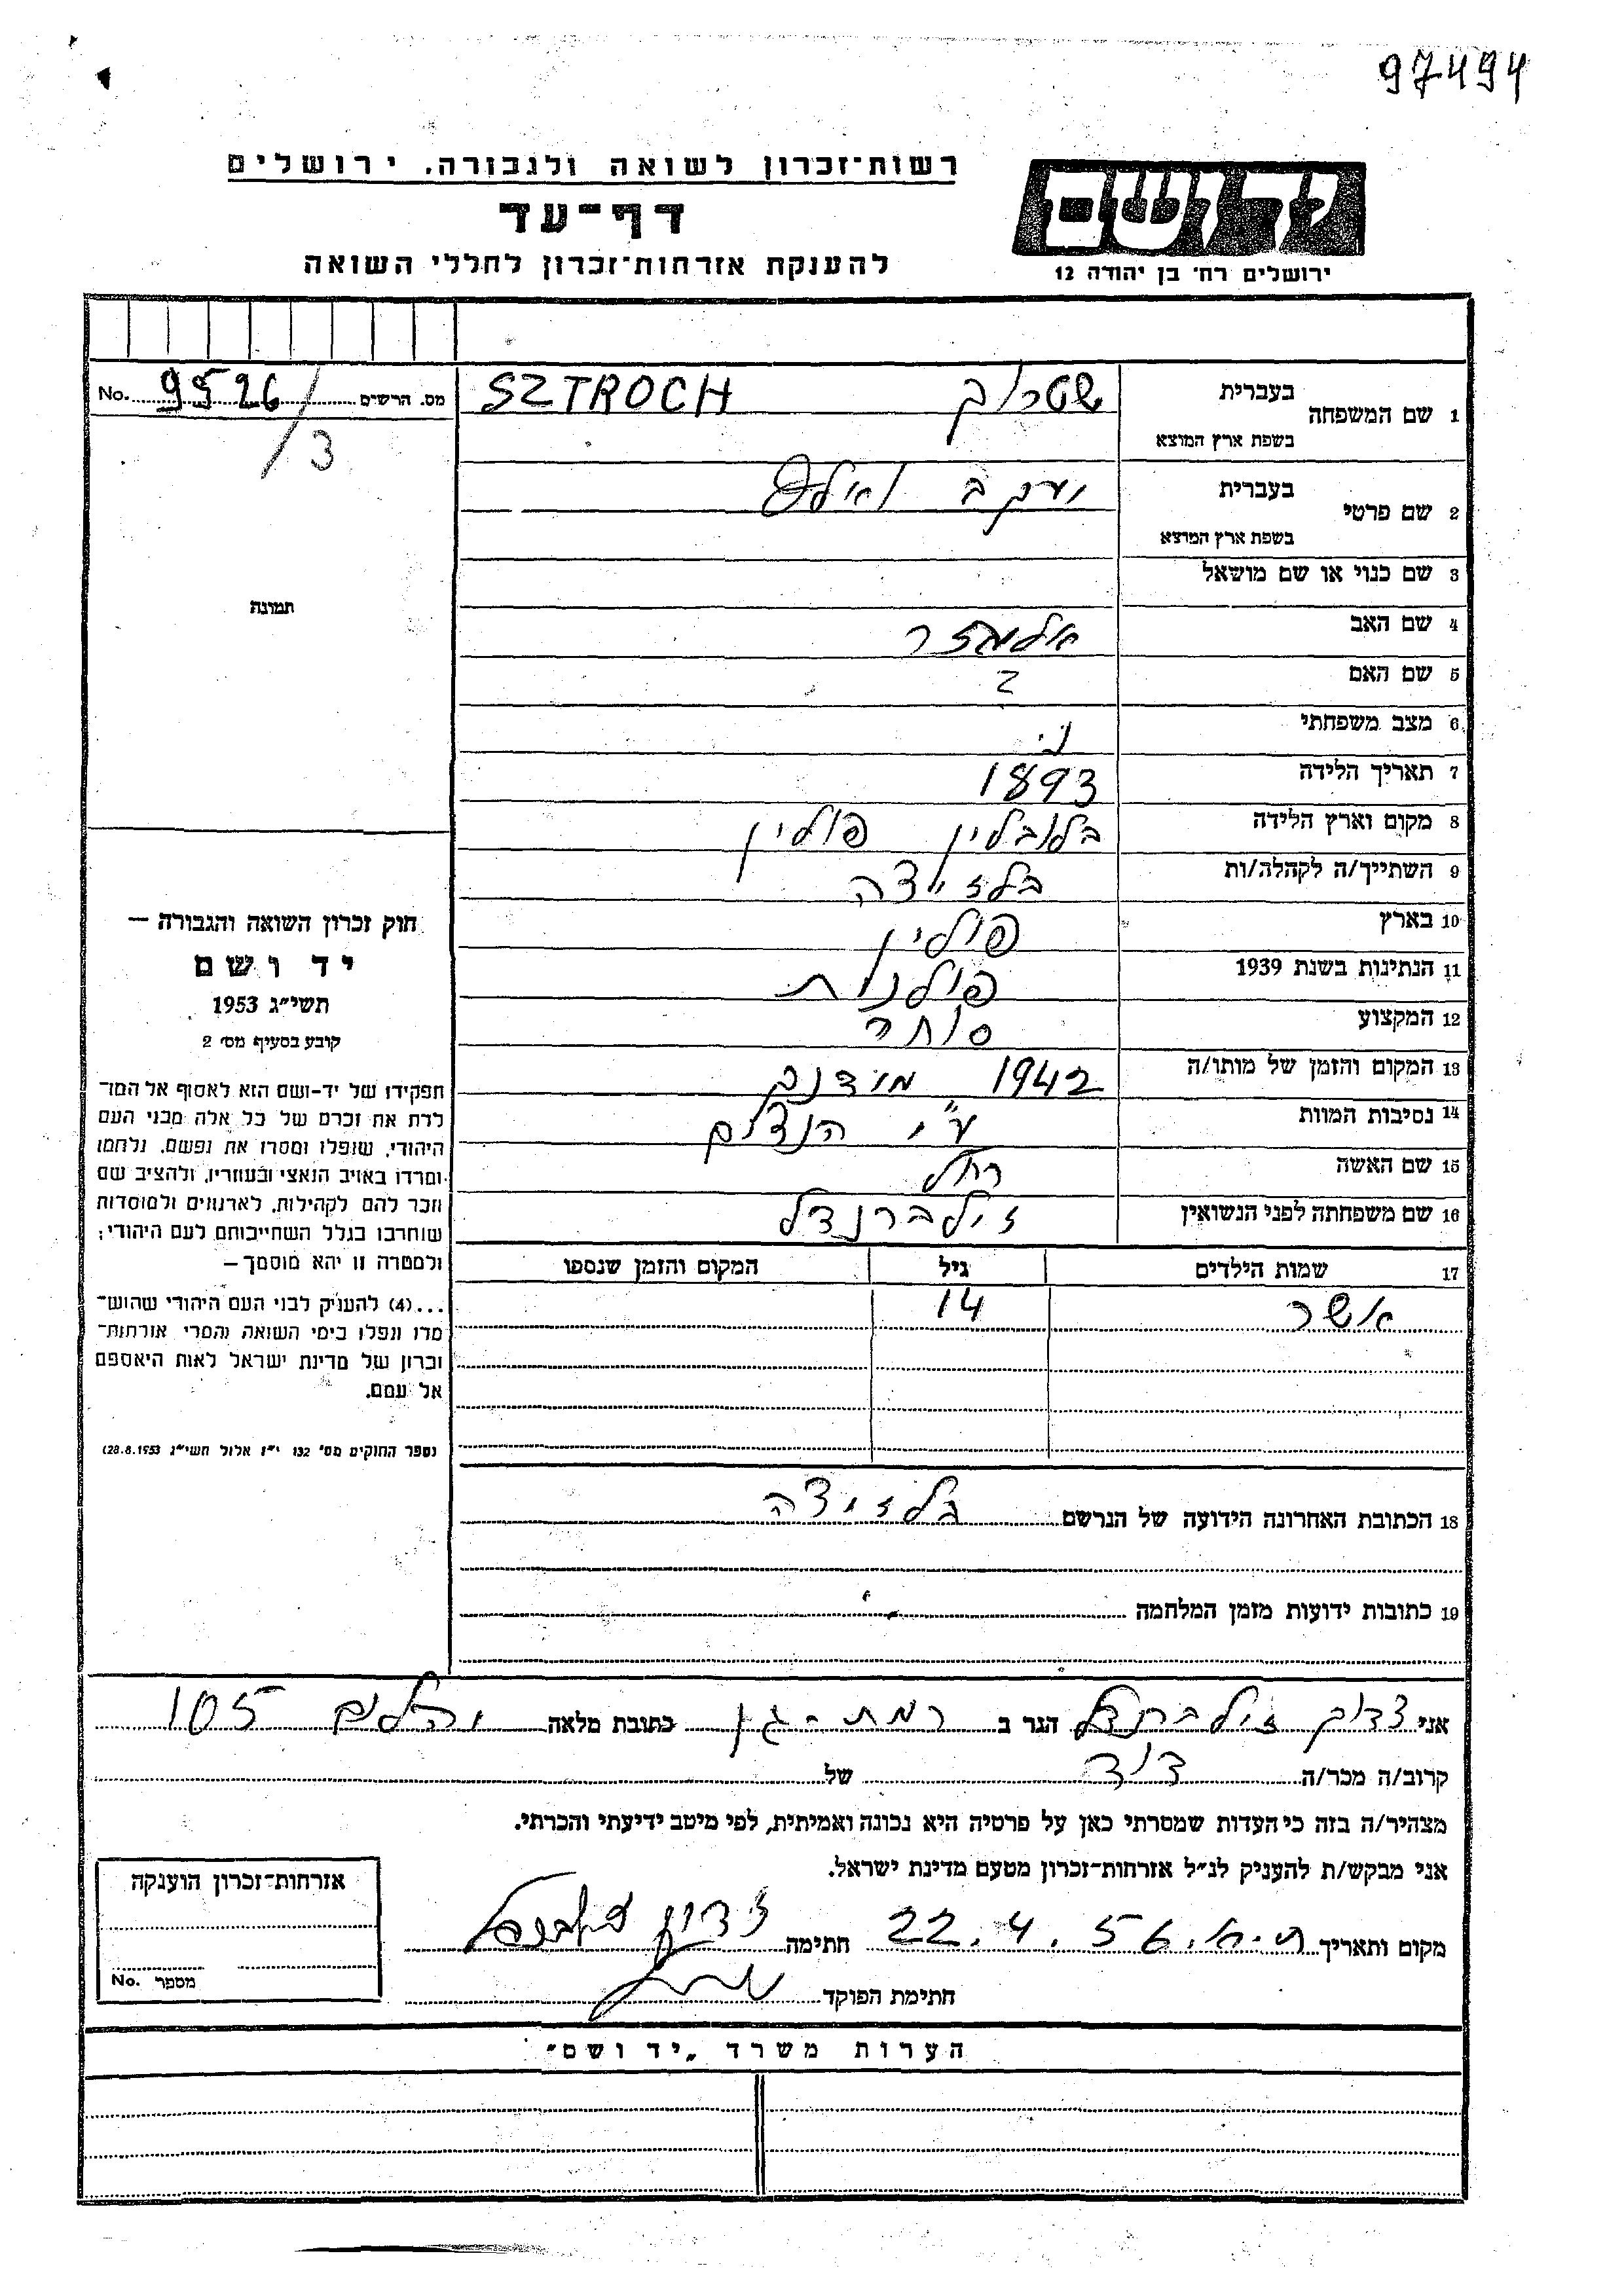 97494
רשות־זכרון לשואה ולגבורה. ירושלים
דף־עד
להענקת אזרחות־זכרון לחללי השואה
יד ושם
ירושלים רח׳ בן יהודה 12
מס. הרשים 9526/ No.
/3
1 שם המשפחה בעברית שטרוך SZTROCH
בשפת ארץ המוצא
2 שם פרטי בעברית יעקב וואלף
בשפת ארץ המוצא
3 שם כנוי או שם מושאל
4 שם האב אלעזר
5 שם האם ?
6 מצב משפחתי נ׳
7 תאריך הלידה 1893
8 מקום וארץ הלידה בלובלין פולין
9 השתייך/ה לקהלה/ות בלזיצה
10 בארץ פולין
11 הנתינות בשנת 1939 פולנית
12 המקצוע סוחר
13 המקום והזמן של מותו/ה 1942 מידנק
14 נסיבות המוות ע״י הנצים
15 שם האשה רחל
16 שם משפחתה לפני הנשואין זילברנדל
17 שמות הילדים גיל המקום והזמן שנספו
אשר 14
18 הכתובת האחרונה הידועה של הנרשם בלזיצה
19 כתובות ידועות מזמן המלחמה
תמונה
חוק זכרון השואה והגבורה —
יד ושם
תשי״ג 1953
קובע בסעיף מס׳ 2
תפקידו של יד-ושם הוא לאסוף אל המו־
לדת את זכרם של כל אלה מבני העם
היהודי, שנפלו ומסרו את נפשם, נלחמו
ומרדו באויב הנאצי ובעוזריו, ולהציב שם
וזכר להם לקהילות, לארגונים ולמוסדות
שנחרבו בגלל השתייכותם לעם היהודי;
ולמטרה זו יהא מוסמך —
...(4) להעניק לבני העם היהודי שהוש־
מדו ונפלו בימי השואה והמרי אזרחות־
זכרון של מדינת ישראל לאות היאספם
אל עמם.
(ספר החוקים מס׳ 132 י״ז אלול תשי״ג 28.8.1953)
אני צדוק זילברנדל הגר ב רמת-גן כתובת מלאה יהלום 105
קרוב/ה מכר/ה דוד של
מצהיר/ה בזה כי העדות שמסרתי כאן על פרטיה היא נכונה ואמיתית, לפי מיטב ידיעתי והכרתי.
אני מבקש/ת להעניק לנ״ל אזרחות־זכרון מטעם מדינת ישראל.
מקום ותאריך ת.א. 22.4.56 חתימה צדוק זילברנדל
חתימת הפוקד
אזרחות־זכרון הוענקה
מספר No.
הערות משרד „יד ושם״